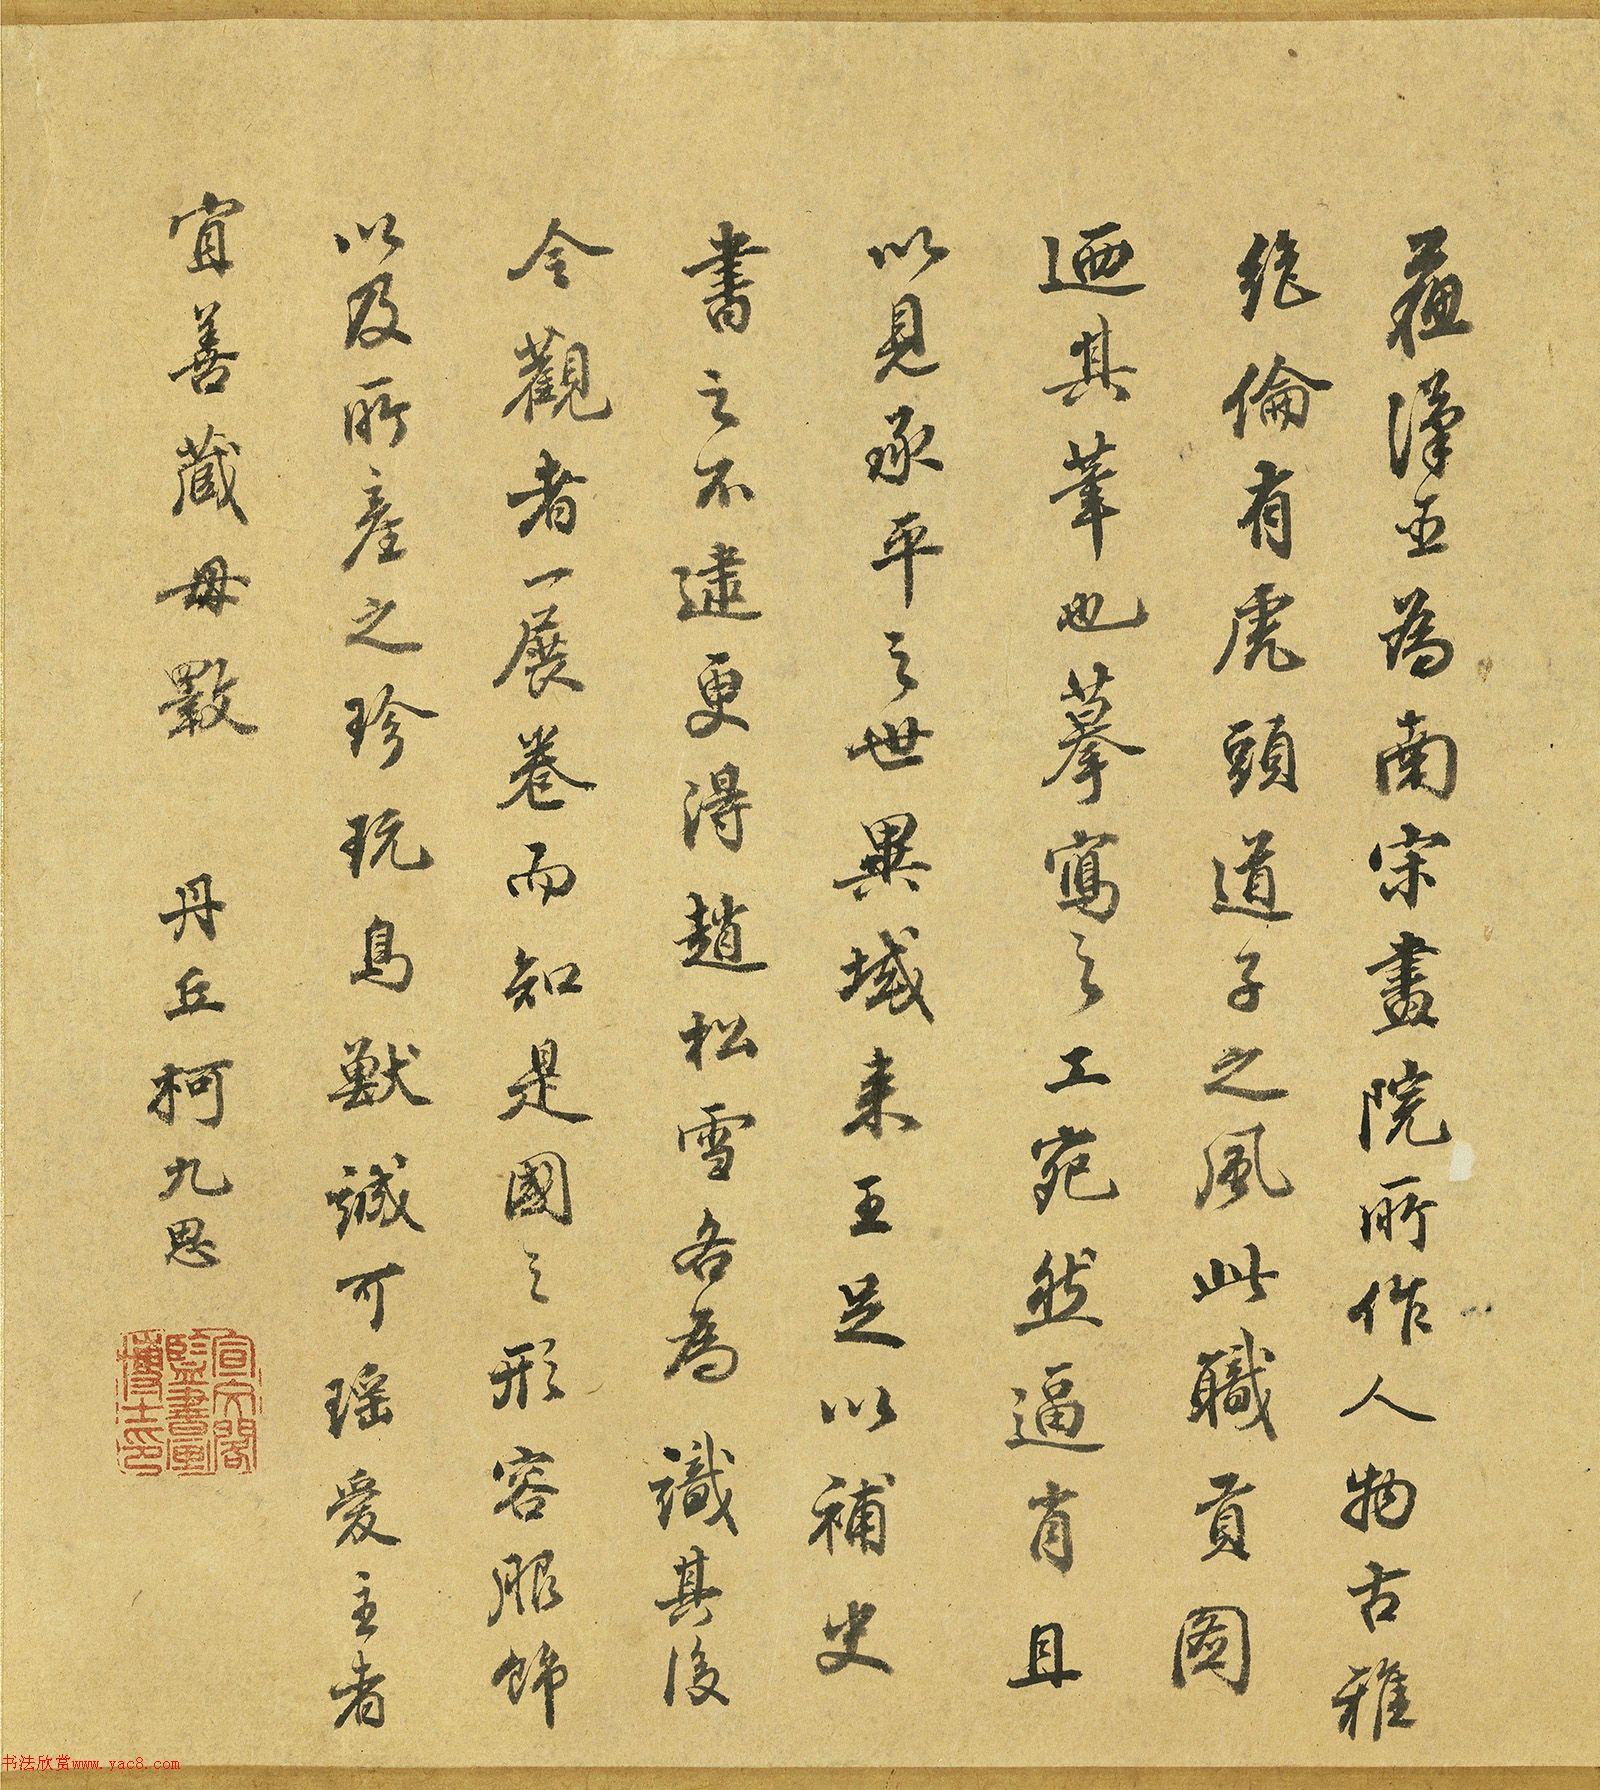 蘇漢臣為南宋畫院所作人物古雅
絶倫有虎頭道子之風此職貢圖
迺其筆也摹寫之工宛然逼肖且
以見承平之世異域来王足以補史
書之不逮更得趙松雪各為識其後
令觀者一展卷而知是國之形容服飾
以及所產之珍玩鳥獸誠可瑶爰主者
宜善藏毋斁 丹丘柯九思
宣文閣
監書畫
博士印
书法欣赏www.yac8.com